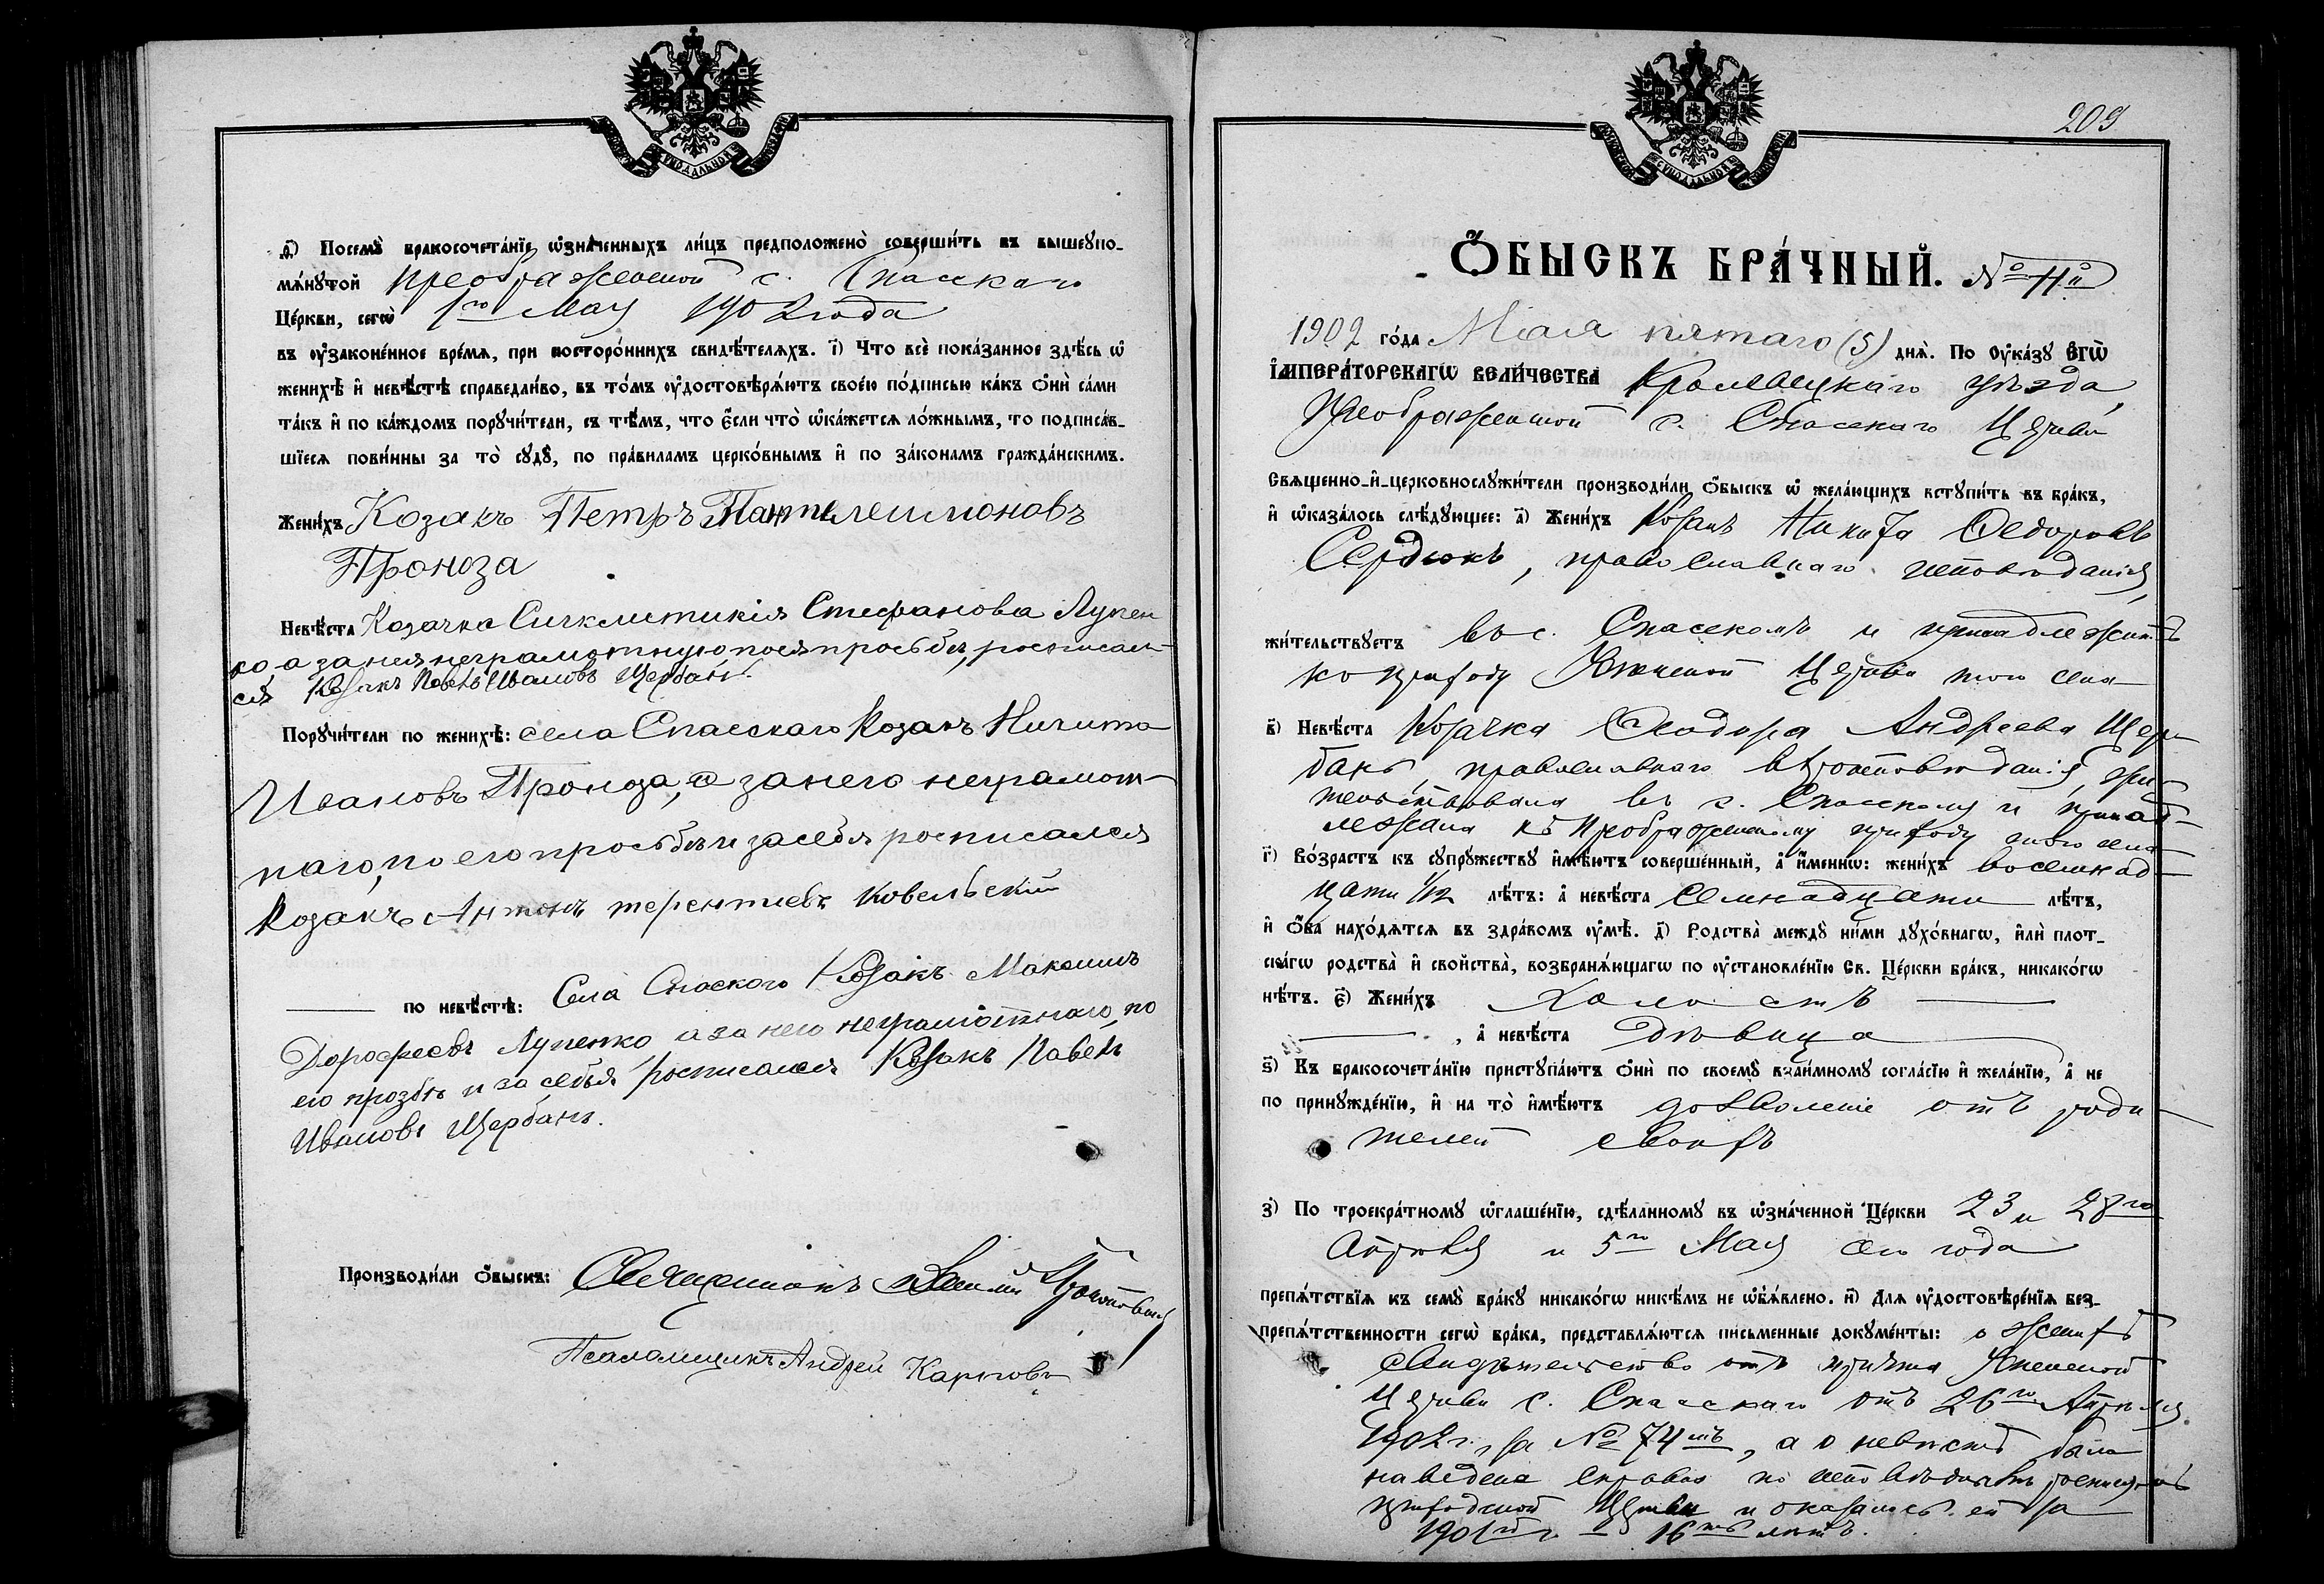 СУНОДАЛЬНОЙ
д҃) Посемѹ̀ бракосочета́нїе ѡ҆зна́ченныхъ ли́цъ предположено̀ соверши́ть въ вышеѹпо-
мѧ́нѹтой Преображенской с. Спасскаго
Це́ркви, сегѡ̀ 1го Мая 1902 года
въ ѹ҆законе́нное вре́мѧ, при посторо́ннихъ свидѣ́телѧхъ. і҃) Что всѐ пока́занное здѣ́сь ѡ҆
женихѣ̀ и҆ невѣ́стѣ справедли́во, въ то́мъ ѹ҆достовѣрѧ́ютъ свое́ю по́дписью ка́къ ѻ҆нѝ са́ми
та́къ и҆ по ка́ждомъ порѹчи́тели, съ тѣ́мъ, что є҆́сли что̀ ѡ҆ка́жетсѧ ло́жнымъ, то подписа́в-
шїесѧ пови́нны за то̀ сѹдѹ̀, по пра́виламъ церко́внымъ и҆ по зако́намъ гражда́нскимъ.
Жени́хъ Козакъ Петръ Пантелеимоновъ
Проноза
Невѣ́ста Козачка Синклитикія Стефанова Лупен
ко, а за нея неграмотную по ея просьбѣ, росписал-
ся Козакъ Павелъ Ивановъ Щербакъ.
Порѹчи́тели по женихѣ̀: села Спасскаго Козакъ Никита
Ивановъ Проноза, а за него неграмот-
наго, по его просьбѣ и за себя росписался
Козакъ Антонъ терентиевъ Ковельскій
по невѣ́стѣ: Села Спаского Козакъ Максимъ
Дорофеевъ Лупенко а за него неграмотнаго, по
его прозбѣ и за себя росписался Козакъ Павелъ
Ивановъ Щербакъ.
Производи́ли ѻ҆́быскъ: Священникъ
Псаломщикъ Андрей Карповъ
СУНОДАЛЬНОЙ
209
Ѻ҆́БЫСКЪ БРА́ЧНЫЙ. № 11й
1902 го́да Мая пятаго (5) днѧ̀. По ѹ҆ка́зѹ Є҆гѡ̀
І҆мпера́торскагѡ Вели́чества Кролевецкаго уѣзда,
Преображенской с. Спасскаго Церкви
Свѧщенно-и҆-церковнослѹжи́тели производи́ли ѻ҆́быскъ ѡ҆ жела́ющихъ встѹпи́ть въ бра́къ,
и҆ ѡ҆каза́лось слѣ́дѹющее: а҃) Жени́хъ Козакъ Никита Федоровъ
Сердюкъ, православнаго исповѣданія,
жи́тельствѹетъ въ с. Спасскомъ и принадлежитъ
къ приходу Успенской Церкви того села
в҃) Невѣ́ста Козачка Феодора Андреева Щер-
бакъ, православнаго вѣроисповѣданія, жи-
тельствовала въ с. Спасскомъ и принад-
лежала къ Преображенскому приходу того села
г҃) Во́зрастъ къ сѹпрѹ́жествѹ и҆мѣ́ютъ соверше́нный, а҆ и҆́меннѡ: жени́хъ восемнад-
цати 1/12 лѣ́тъ: а҆ невѣ́ста семнадцати лѣ́тъ,
и҆ ѻ҆́ба нахо́дѧтсѧ въ здра́вомъ ѹ҆мѣ̀. д҃) Родства̀ междѹ̀ ни́ми дѹхо́внагѡ, и҆лѝ плот-
ска́гѡ родства̀ и҆ свойства̀, возбранѧ́ющагѡ по ѹ҆становле́нїю Св. Це́ркви бра́къ, никако́гѡ
нѣ́тъ. є҃) Жени́хъ холостъ
, а҆ невѣ́ста дѣвица
ѕ҃) Къ бракосочета́нїю пристѹпа́ютъ ѻ҆нѝ по своемѹ̀ взаи́мномѹ согла́сїю и҆ жела́нїю, а҆ не
по принѹжде́нїю, и҆ на то̀ и҆мѣ́ютъ дозволеніе отъ роди-
телей своихъ
з҃) По троекра́тномѹ ѡ҆глаше́нїю, сдѣ́ланномѹ въ ѡ҆зна́ченной Це́ркви 23 и 28го
Апрѣля и 5го Мая сего года
препѧ́тствїѧ къ семѹ̀ бра́кѹ никако́гѡ никѣ́мъ не ѡ҆б̾ѧ́влено. и҃) Длѧ ѹ҆достовѣре́нїѧ без-
препѧ́тственности сегѡ̀ бра́ка, представлѧ́ютсѧ письменные докѹме́нты: о женихѣ
свидѣтельство отъ причта Успенской
Церкви с. Спасскаго отъ 26го Апрѣля
1902 г. за № 74мъ, а о невѣстѣ была
наведена справка по исповѣднымъ росписямъ
приходской Церкви и оказалось ей за
1901й г. – 16ть лѣтъ.